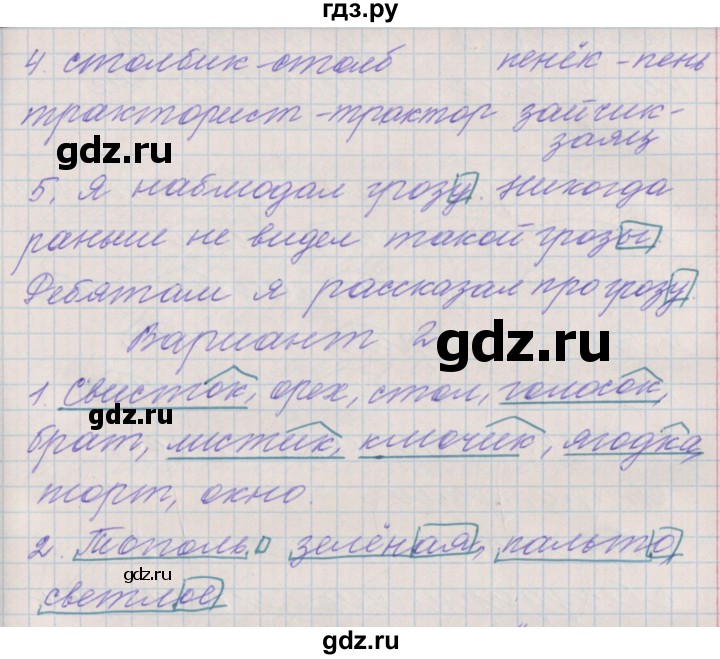 гдз.ру
4. столбик - столб пенёк - пень
тракторист - трактор зайчик -
заяц
gdz.ru
5. Я наблюдал грозу. Никогда
раньше не видел такой грозы.
Ребятам я рассказал про грозу.
Вариант 2
gdz.ru
1. Свисток, орех, стол, голосок,
gdz.ru
брат, листик, ключик, ягодка,
торт, окно.
2. Тополь, зелёная, пальто,
gdz.ru
светлое
gdz.ru